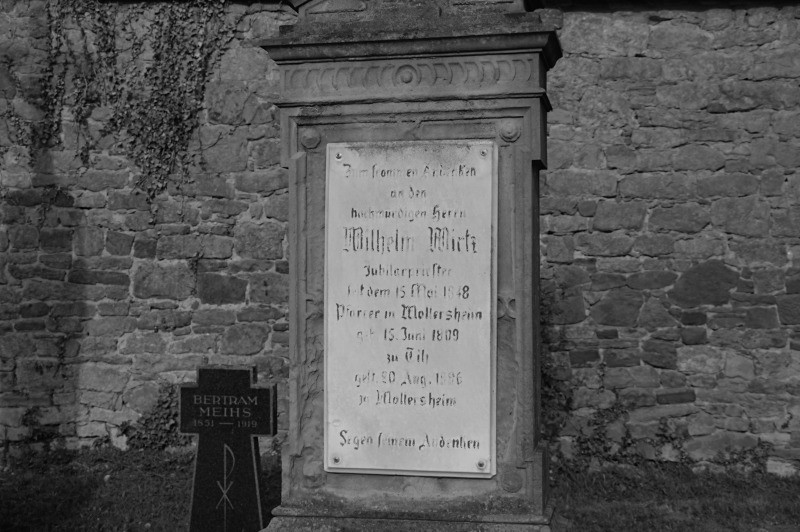 Zum frommen Andenken
an den
hochwürdigen Herrn
Wilhelm Wirtz
Jubilarpriester
seit dem 15 Mai 1848
Pfarrer in Mollersheim
geb. 15. Juni 1809
zu
gest. 20 Aug. 1886
zu Mollersheim
Segen seinem Andenken
BERTRAM
MEIHS
1851 - 1919